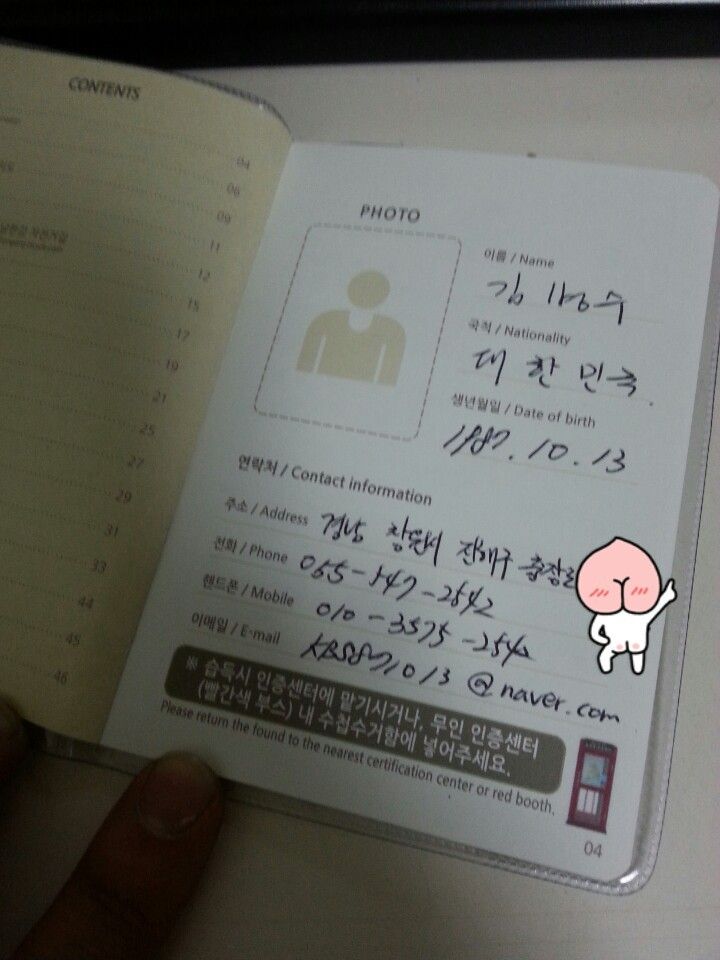 CONTENTS
04
06
09
11
12
15
17
19
21
25
27
29
31
33
44
45
46
PHOTO
이름 / Name
김
국적 / Nationality
대한민국.
생년월일 / Date of birth
1987.10.13
연락처 / Contact information
주소 / Address 경남 창원시 진해구 충장로
전화 / Phone 055-547-2542
핸드폰 / Mobile 010-3575-2542
이메일 / E-mail KBS871013@naver.com
※ 습득시 인증센터에 맡기시거나, 무인 인증센터
(빨간색 부스) 내 수첩수거함에 넣어주세요.
Please return the found to the nearest certification center or red booth.
04